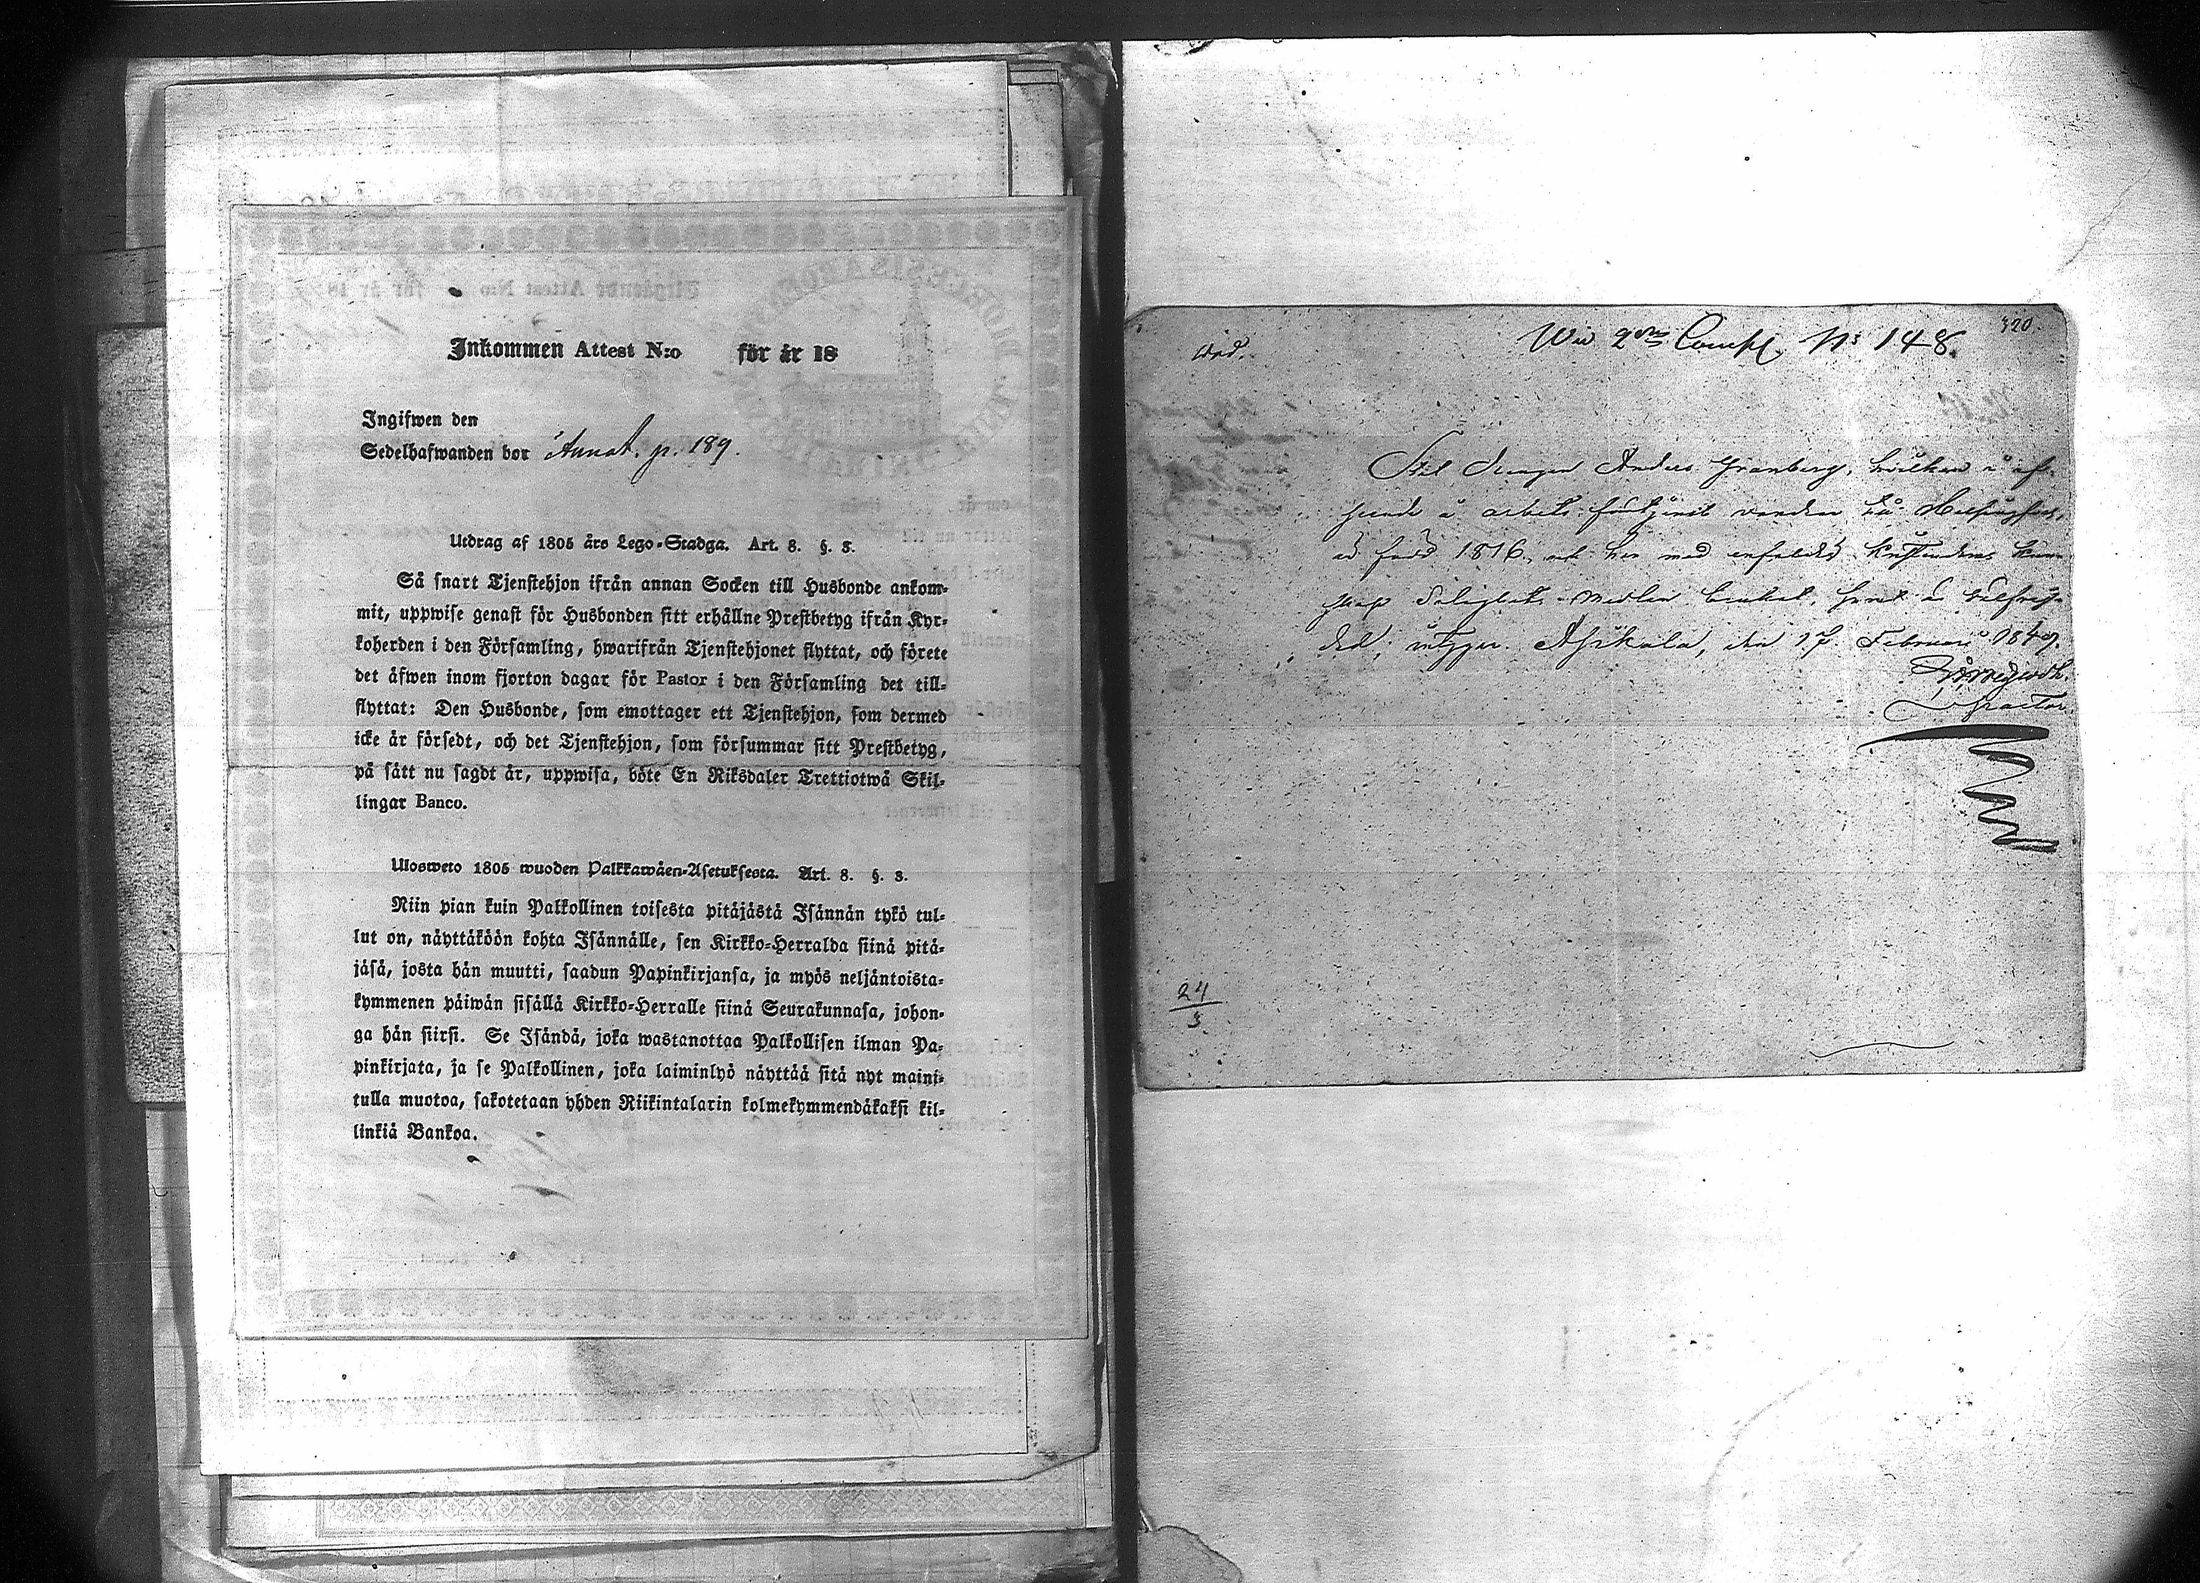 Inkommen Attest N:o för år 18
Ingifwen den
Sedelhafwanden bor Annot. p. 189.
Utdrag af 1805 års Lego-Stadga. Art. 8. §. 3.
Så snart Tjenstehjon ifrån annan Socken till Husbonde ankom-
mit, uppwise genast för Husbonden sitt erhållne Prestbetyg ifrån Kyr-
koherden i den Församling, hwarifrån Tjenstehjonet flyttat, och förete
det äfwen inom fjorton dagar för Pastor i den Församling det till-
flyttat: Den Husbonde, som emottager ett Tjenstehjon, som dermed
icke är försedt, och det Tjenstehjon, som försummar sitt Prestbetyg,
på sätt nu sagdt är, uppwisa, böte En Riksdaler Trettiotwå Skil-
lingar Banco.
Ulosweto 1805 wuoden Palkkawäen-Asetuksesta. Art. 8. §. 3.
Niin pian kuin Palkollinen toisesta pitäjästä Isännän tykö tul-
lut on, näyttäköön kohta Isännälle, sen Kirkko-Herralda siinä pitä-
jäsä, josta hän muutti, saadun Papinkirjansa, ja myös neljäntoista-
kymmenen päiwän sisällä Kirkko-Herralle siinä Seurakunnasa, johon-
ga hän siirsi. Se Isändä, joka wastanottaa Palkollisen ilman Pa-
pinkirjata, ja se Palkollinen, joka laiminlyö näyttää sitä nyt maini-
tulla muotoa, sakotetaan yhden Riikintalarin kolmekymmendäkaksi kil-
linkiä Bankoa.
320.
Wid 2dra Compl. N: 148.
Drengen Anders Granberg, hwilken i af-
seende å arbets förtjenst vandrar till Helsingfors,
är född 1816, och har med enfaldig kristendoms kun-
skap Salighets Medlen brukat, samt är
intygar. Asikkala, den 17 Februari 1849.
Pastor.
24
3